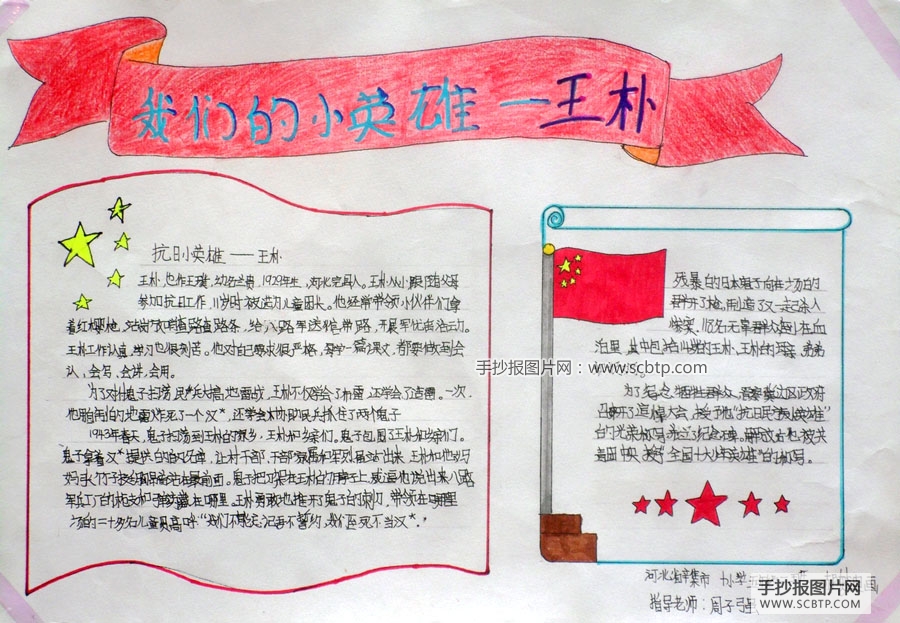 我们的小英雄一王朴
抗日小英雄——王朴
王朴,也作王璞,幼名三得,1929年生,河北完县人。王朴从小跟随父母
参加抗日工作,11岁时被选为儿童团长。他经常带领小伙伴们拿
着红缨枪,站岗放哨查路条,给八路军送信,带路,开展军优属活动。
王朴工作认真,学习也很刻苦。他对自己要求很严格,每学一篇课文,都要做到会
认,会写,会讲,会用。
为了对付鬼子扫荡,民兵大搞地雷战,王朴不仅学会了布雷,还学会了造雷。一次,
他用自制的地雷炸死了一个汉*,还学会协助民兵抓住了两个鬼子
1943年春天,鬼子扫荡到王朴的家乡,王朴和乡亲们。鬼子包围了王朴和乡亲们。
鬼子拿着汉*提供的的名单,让村干部,干部家属和军烈属站出来,王朴和他妈
妈
鬼子把刺刀架在王朴的脖子上,威逼他说出来八路
军兵工厂的枪支和子弹藏在哪里。王朴勇敢地推开鬼子的刺刀,带领在
场的二十多名儿童员高呼“我们不忘记再不誓约,我们至死不当汉*。”
残暴的日本鬼子向在场的
群开了枪,制造了又一起杀人
惨案。118名无辜群众倒在血
泊里,其中包括14岁的王朴,王朴的母亲,弟弟
为了纪念牺牲群众,晋察冀边区政府
召开了追悼大会,授予他“抗日民族小英雄”
的光荣称号,并立了纪念碑。解放后,他被共
青团中央授予“全国十大少年英雄”的称号。
手抄报图片网:www.scbtp.com
河北省辛集市
指导老师:周子
手抄报图片网
WWW.SCBTP.COM